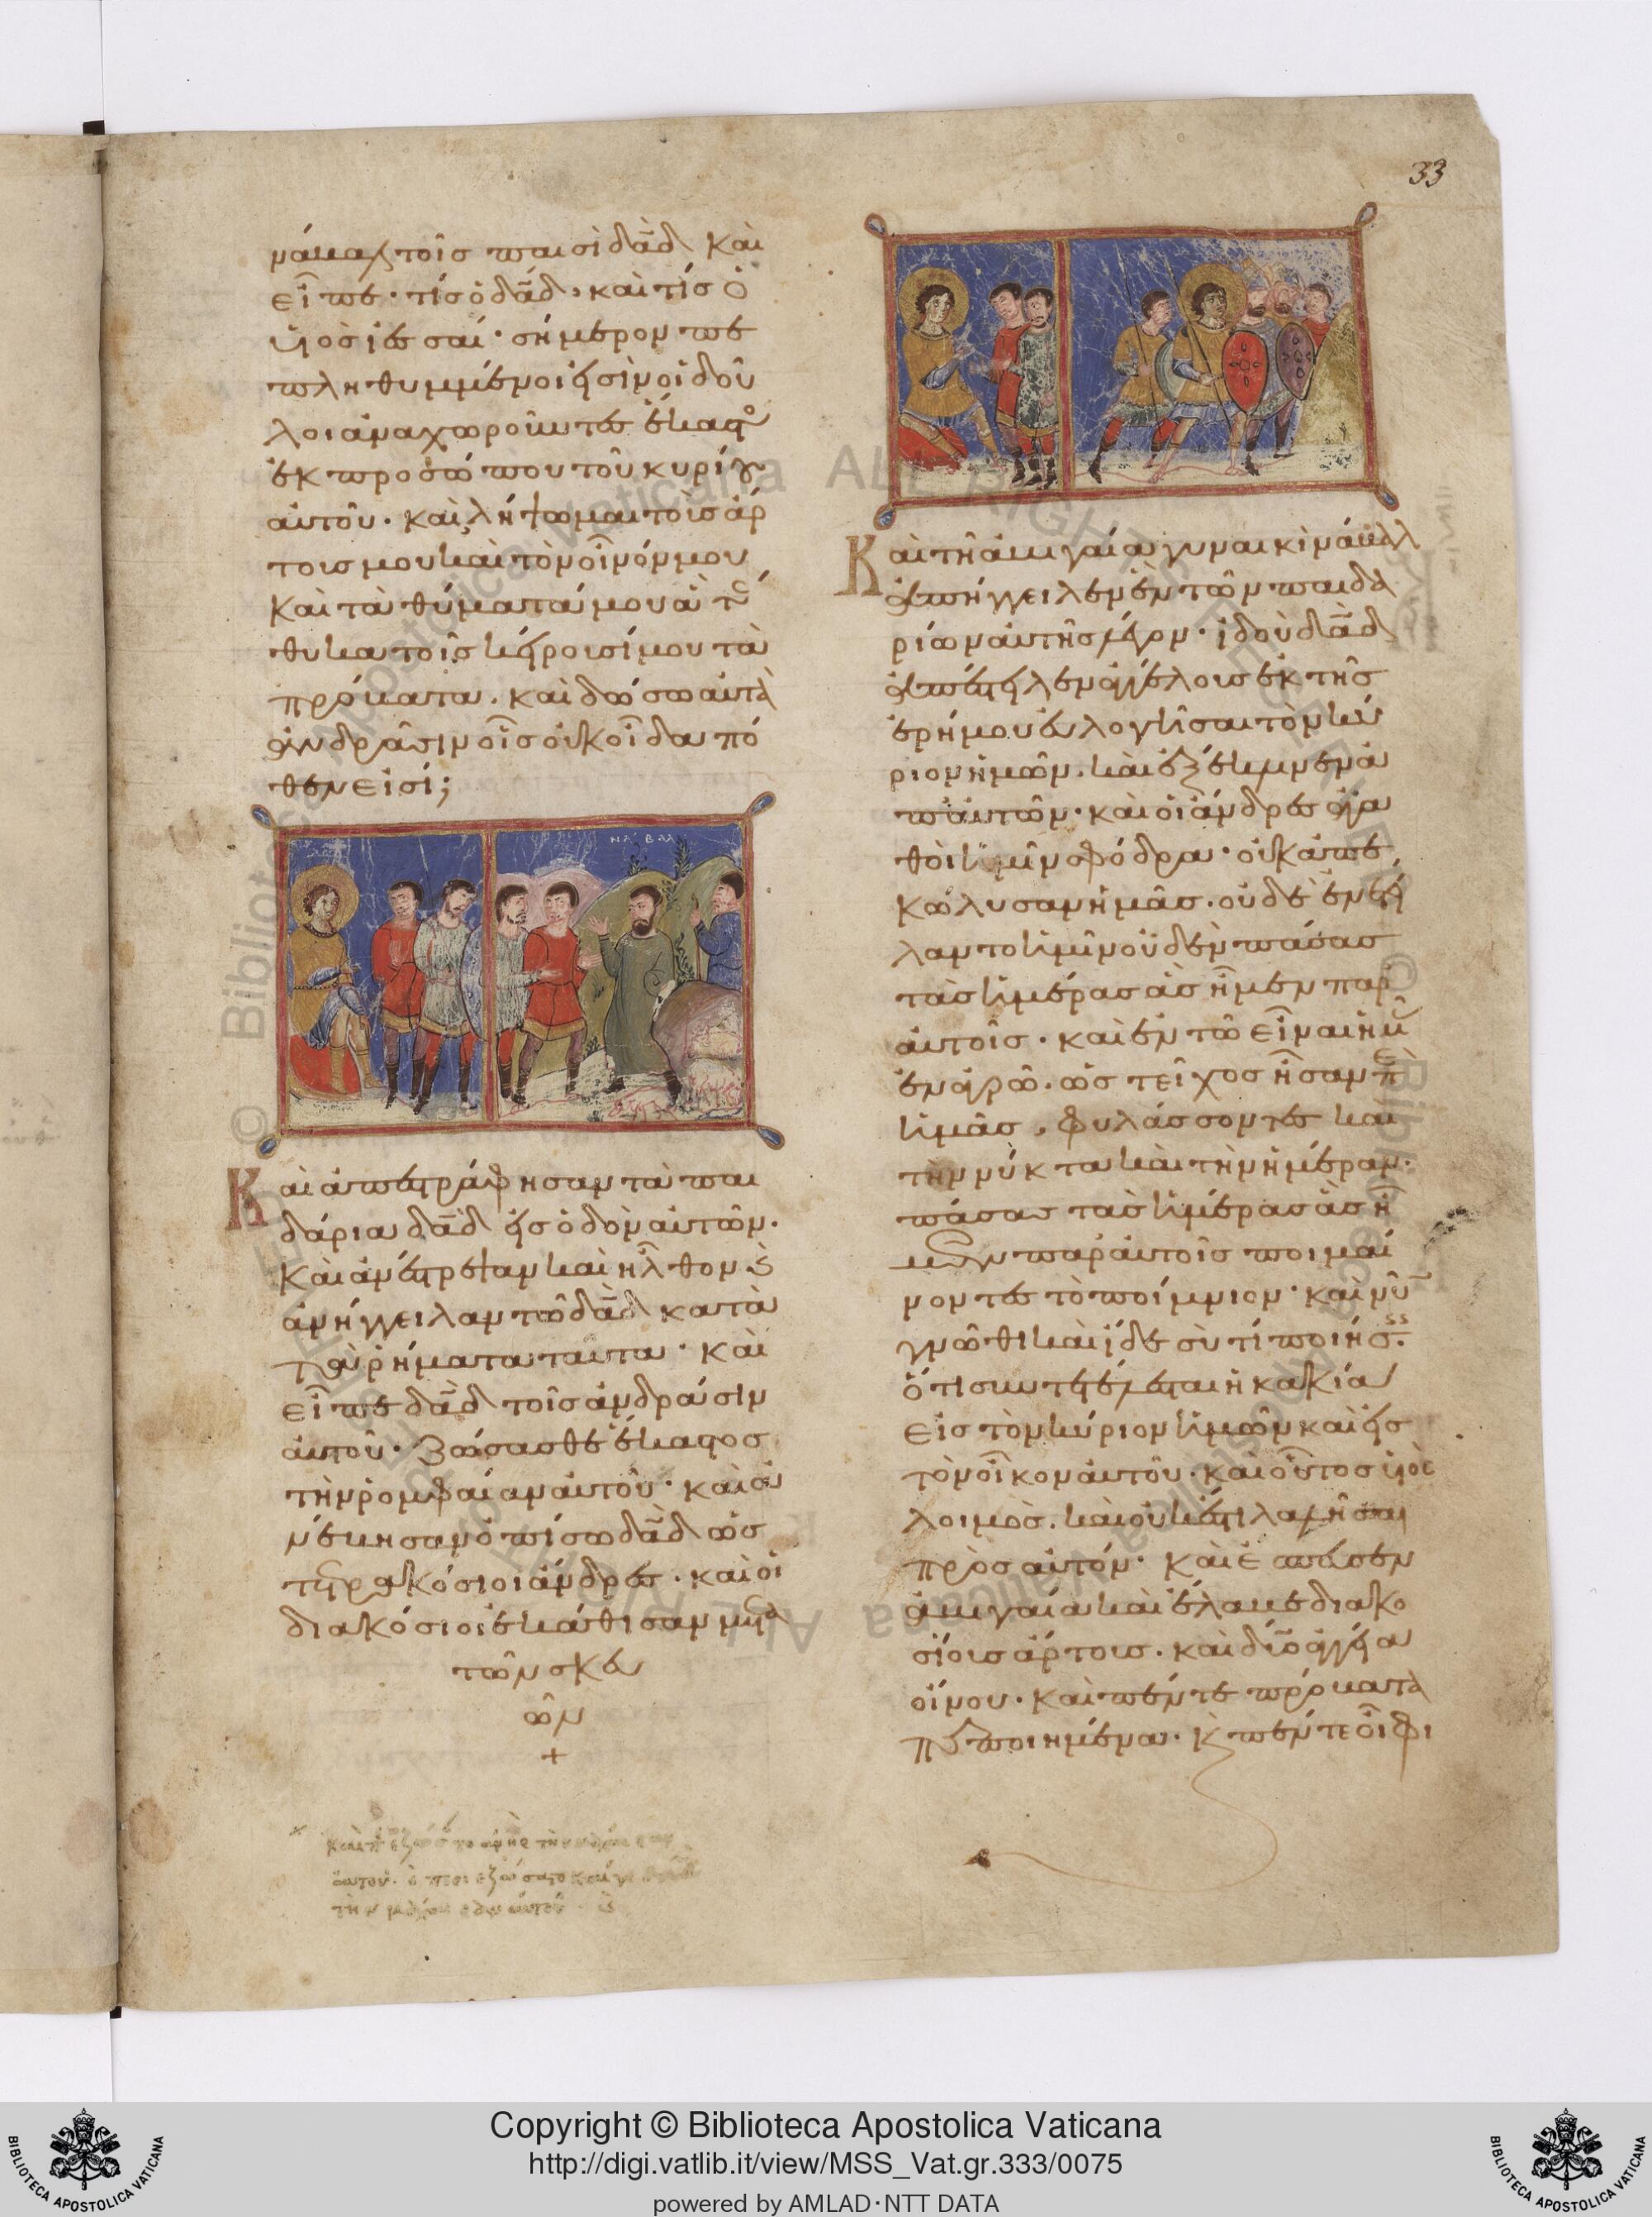 33
νάβαλ τοῖς παισὶ δᾱδ̄ καὶ
εἶπε· τίς ὁ δᾱδ̄, καὶ τίς ὁ
υἱὸς ἰεσσαί· σήμερον πε
πληθυμμένοι εἰσὶν οἱ δοῦ
λοι ἀναχωροῦντες ἕκαστο
ἐκ προσώπου τοῦ κυρίου
αὐτοῦ· καὶ λήψωμαι τοὺς ἄρ
τους μου καὶ τὸν οἶνόν μου
καὶ τὰ θύματά μου ἃ τέ
θυκα τοῖς κείρουσί μου τὰ
πρόβατα. καὶ δώσω αὐτὰ
ἀνδράσιν οἷς οὐκ οἶδα πό
θεν εἰσί;
ΝΑΒΑΛ
Καὶ ἀπεστράφησαν τὰ παι
δάρια δᾱδ̄ εἰς ὁδὸν αὐτῶν.
καὶ ἀνέστρεψαν καὶ ἦλθον ϗ
ἀνήγγειλαν τῶ δᾱδ̄ κατὰ
τὰ ῥήματα ταῦτα· καὶ
εἶπε δᾱδ̄ τοῖς ἀνδράσιν
αὐτοῦ· ζώσασθε ἕκαστος
τὴν ῥομφαίαν αὐτοῦ· καὶ ἀ
νέβησαν ὀπίσω δᾱδ̄ ὡς
τετρακόσιοι ἄνδρες· καὶ οἱ
διακόσιοι ἐκάθισαν μετὰ
τῶν σκευ
ῶν
+
Καὶ τῆ ἀβιγαία γυναικὶ νάβαλ
ἀπήγγειλεν ἓν τῶν παιδα
ρίων αὐτῆς λέγον· ἰδοὺ δᾱδ̄
ἀπέστειλεν ἀγγέλους ἐκ τῆς
ἐρήμου εὐλογῆσαι τὸν κύ
ριον ἡμῶν. καὶ ἐξέκλινεν ἀ
π' αὐτῶν· καὶ οἱ ἄνδρες ἀγα
θοὶ ἡμῖν σφόδρα· οὐκ ἀπε
κώλυσαν ἡμᾶς. οὐδὲ ἐνετεί
λαντο ἡμῖν οὐδὲν πάσας
τὰς ἡμέρας ἃς ἦμεν παρ'
αὐτοῖς· καὶ ἐν τῶ εἶναι ἡμᾶς
ἐν ἀγρῶ. ὡς τεῖχος ἦσαν περὶ
ἡμᾶς, φυλάσσοντες καὶ
τὴν νύκτα καὶ τὴν ἡμέραν.
πάσας τὰς ἡμέρας ἃς ἦ
μεν παρ' αὐτοῖς ποιμαί
νοντες τὸ ποίμνιον· καὶ νῦν
γνῶθι καὶ ἴδε σὺ τί ποιήσεις.
ὅτι συντετέλεσται ἡ κακία
εἰς τὸν κύριον ἡμῶν καὶ εἰς
τὸν οἶκον αὐτοῦ· καὶ οὗτος υἱὸς
λοιμὸς. καὶ οὐκ ἔστι λαλῆσαι
πρὸς αὐτόν· καὶ ἔσπευσεν
ἀβιγαία καὶ ἔλαβε διακο
σίους ἄρτους. καὶ δύο ἀγγεῖα
οἴνου. καὶ πέντε πρόβατα
πεποιημένα. κ πέντε οἰφι
Copyright © Biblioteca Apostolica Vaticana
http://digi.vatlib.it/view/MSS_Vat.gr.333/0075
powered by AMLAD·NTT DATA
BIBLIOTECA APOSTOLICA VATICANA
BIBLIOTECA APOSTOLICA VATICANA